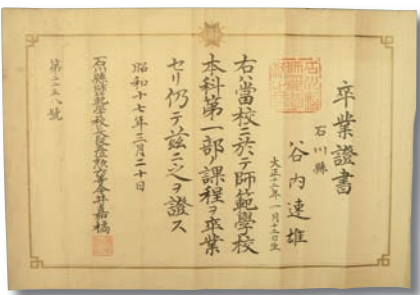 卒業證書
石川縣
谷内速雄
大正十二年一月十五日生
右ハ當校ニ於テ師範學校
本科第一部ノ課程ヲ卒業
セリ仍テ茲ニ之ヲ證ス
昭和十七年三月二十日
石川縣師範學校長
今井嘉橘